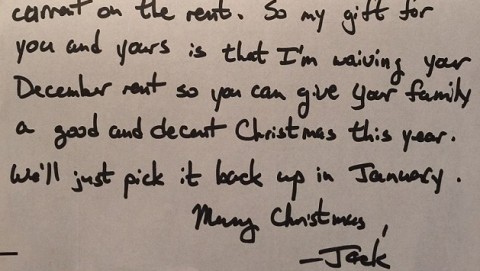 current on the rent. So my gift for
you and yours is that I'm waiving your
December rent so you can give your family
a good and decent Christmas this year.
We'll just pick it back up in January.
Merry Christmas,
—Jack